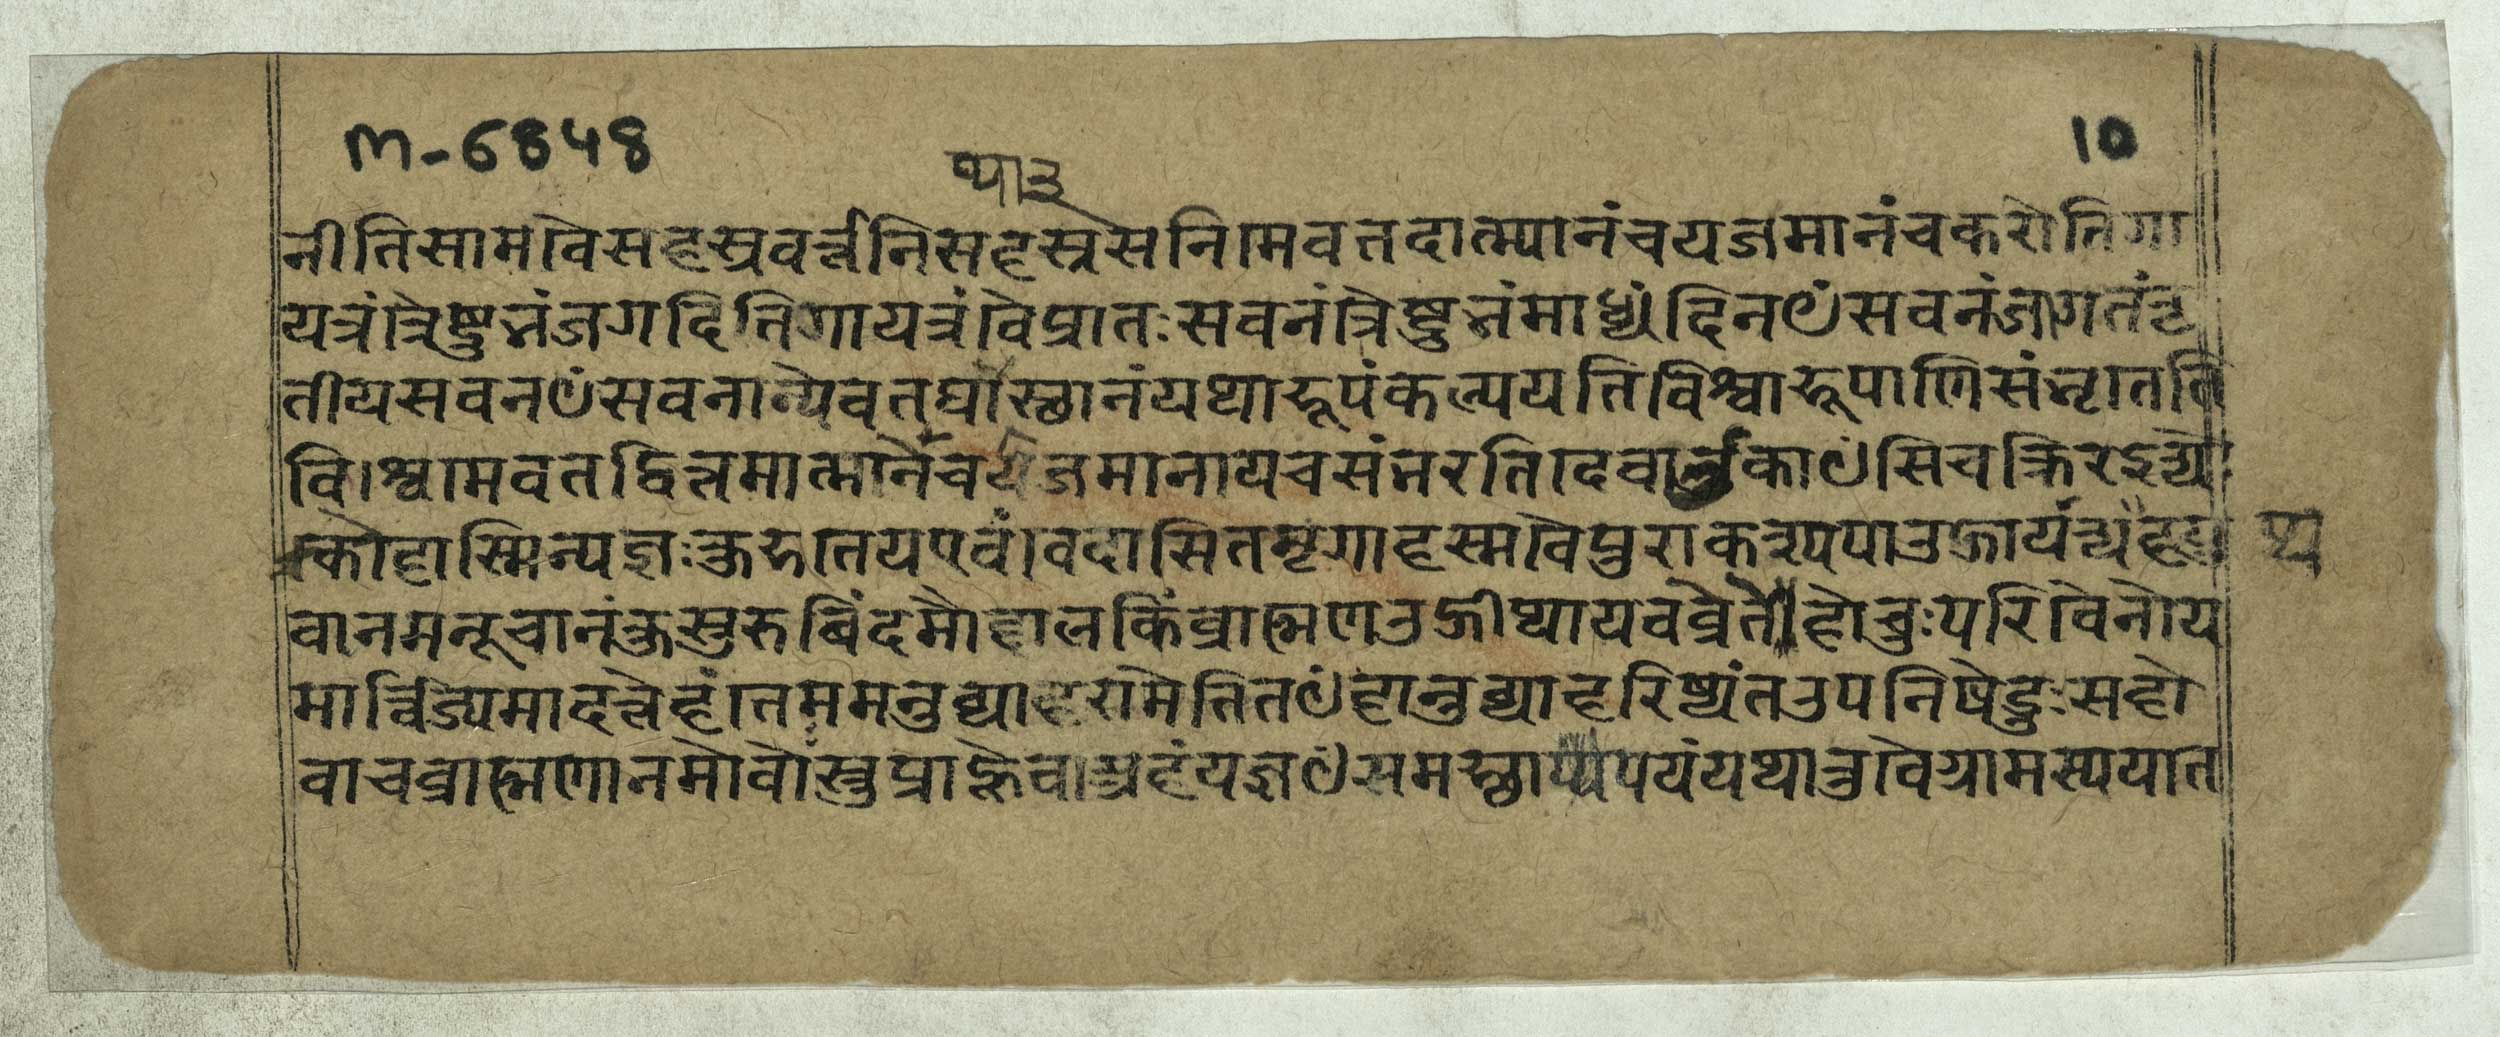 m-6848
10
थाउ
नीतिसामवैसहस्रवर्त्तनिसहस्रसनिमेवतदात्मानंचयजमानंचकरोतिगा
यत्रंत्रैष्टुभंजगदितिगायत्रंवैप्रातःसवनंत्रैष्टुभंमाध्यंदिनꣳसवनंजागतंतृ
तीयसवनꣳसवनान्येवतद्यथास्थानंयथारूपंकल्पयतिविश्वारूपाणिसंभृतेति
विश्वमेवतद्वित्तमात्मनेचयजमानायचसंभरतिदेवाकाꣳसिचक्रिरइत्यो
कोहास्मिन्यज्ञःकुरुतेयएवंवेदासितमृगाहस्मवैपुराकश्यपाउद्गायंत्यथह
वानमनूचानंकुसुरुबिंदमौद्दालकिंब्राह्मणउद्गीथायवव्रेतेहोचुःपरिवैनोय
मार्त्विज्यमादत्तेहंतेममनुव्याहरामेतितꣳहानुव्याहरिष्यंतउपनिषेदुःसहो
वाचब्राह्मणानमोवोस्तुप्राह्णेवाअहंयज्ञꣳसमस्थापयंयथानुवैग्रामस्ययात
थ